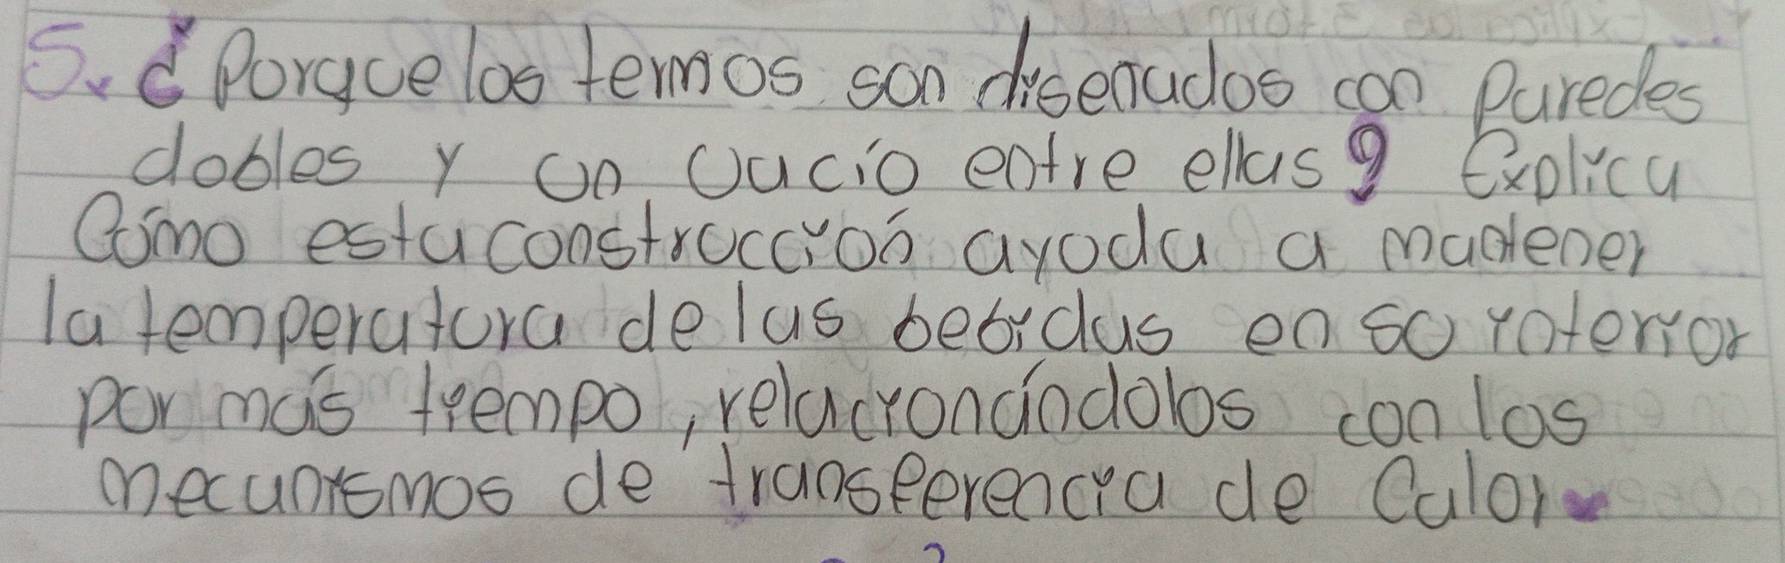 5. ¿Porque los termos son diseñados con Paredes
dobles y un vacio entre ellas? Explica
Cómo esta construcción ayuda a mantener
la temperatura de las bebidas en su interior
por más tiempo, relacionándolos con los
mecanismos de transferencia de Calor.